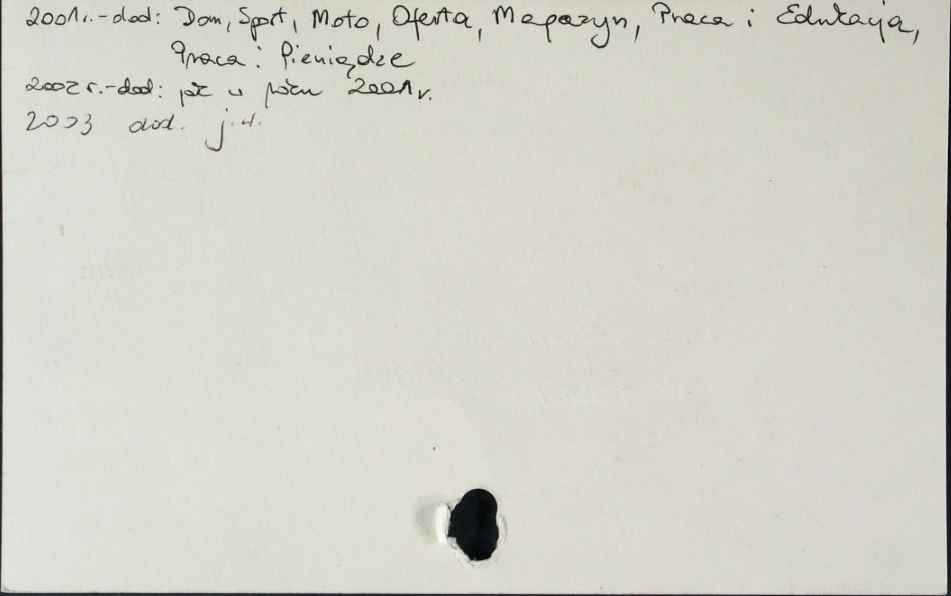 2001r.-dod: Dom, Sport, Moto, Oferta, Magazyn, Praca i Edukacja,
Praca i Pieniądze
2002 r.-dod: jak w roku 2001 r.
2003 dod. j.w.